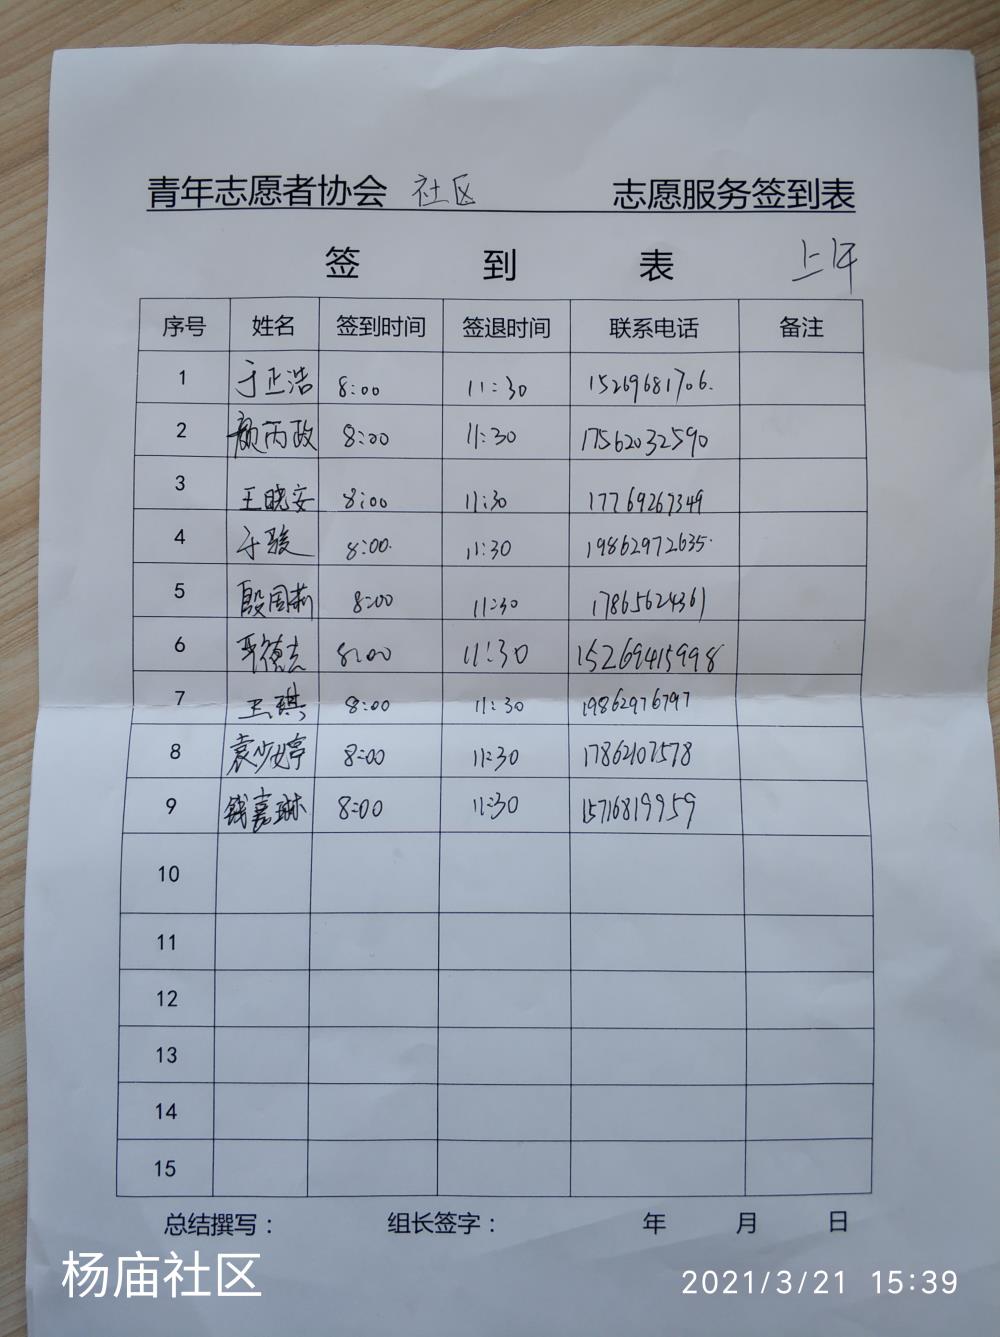 青年志愿者协会 社区 志愿服务签到表
签 到 表 上午
序号 姓名 签到时间 签退时间 联系电话 备注
1 于正浩 8:00 11:30 15269681706.
2 颜丙政 8:00 11:30 17562032590
3 王晓安 8:00 11:30 17769267349
4 于骏 8:00. 11:30 19862972635.
5 殷国莉 8:00 11:30 17865624361
6 德志 8:00 11:30 15269415998
7 王琪 8:00 11:30 19862976797
8 袁少婷 8:00 11:30 17862107578
9 钱嘉琳 8:00 11:30 15716819959
10
11
12
13
14
15
总结撰写： 组长签字： 年 月 日
杨庙社区
2021/3/21 15:39